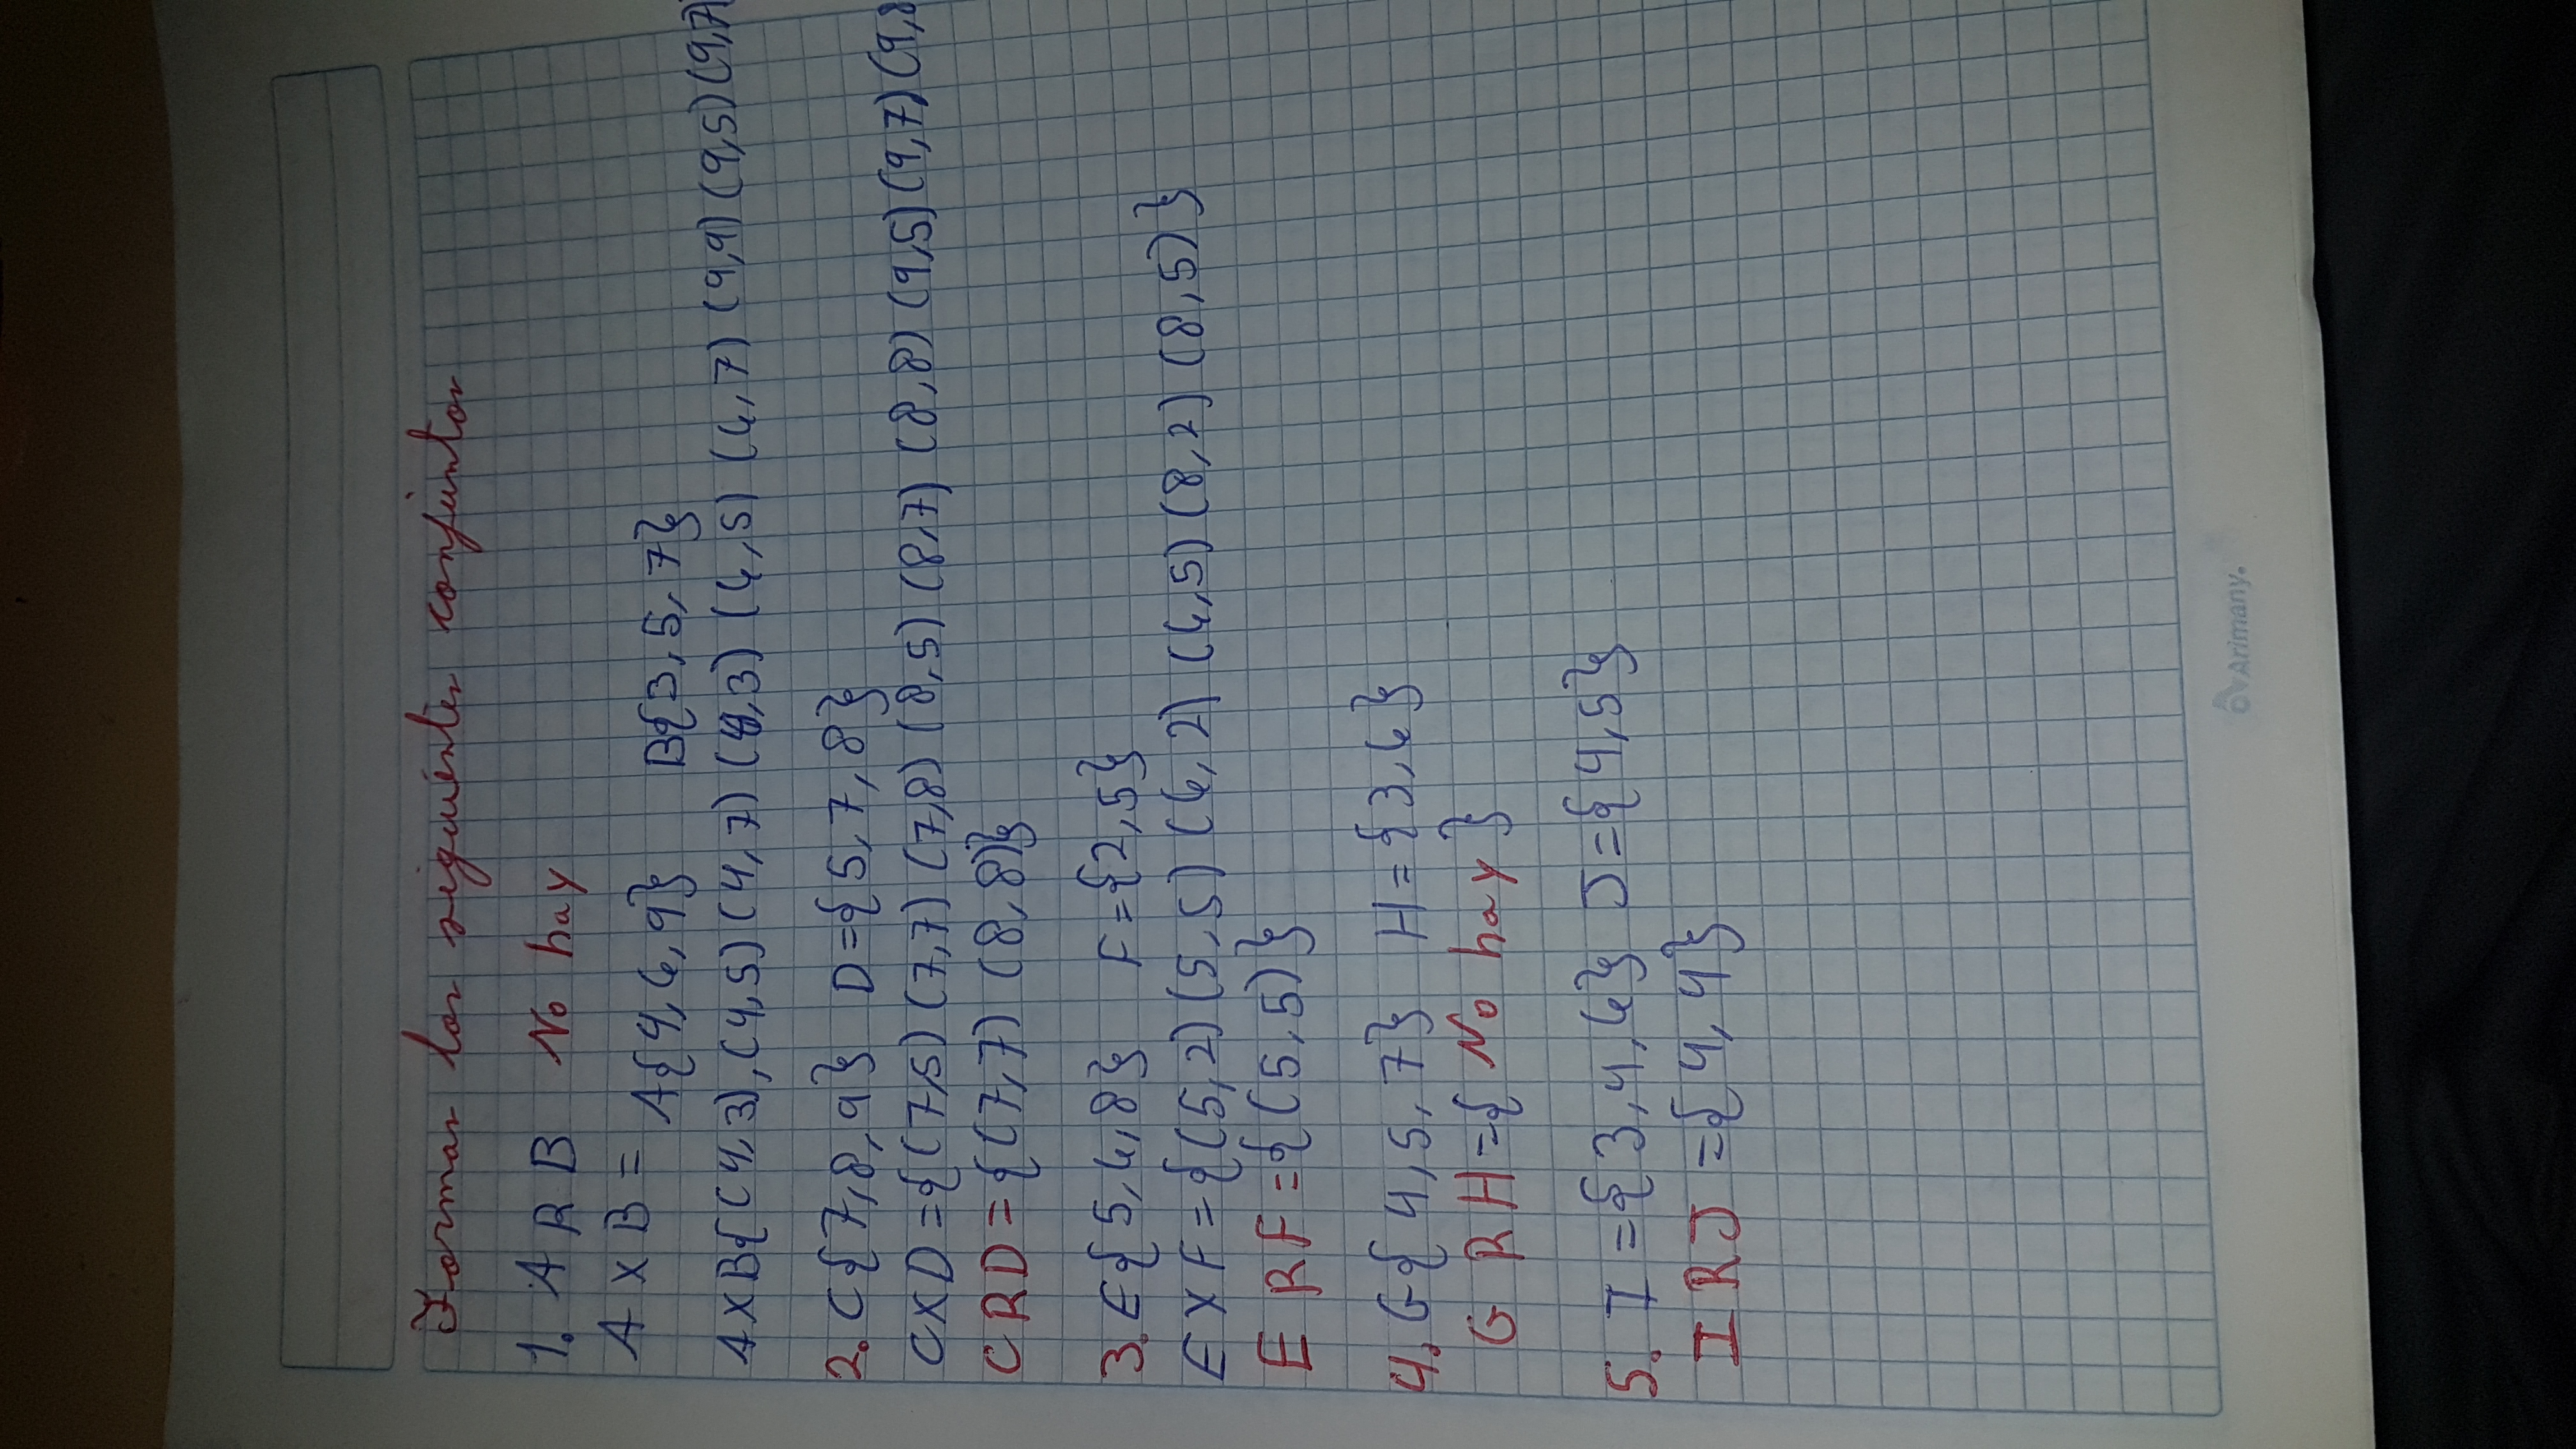 Formar los siguientes conjuntos
1. A R B No hay
A x B = A{4,6,9} B{3,5,7}
A x B{(4,3),(4,5)(4,7)(6,3)(6,5)(6,7)(9,9)(9,5)(9,7)
2. C{7,8,9} D={5,7,8}
C x D={(7,5)(7,7)(7,8)(8,5)(8,7)(8,8)(9,5)(9,7)(9,8
C R D={(7,7)(8,8)}
3. E{5,6,8} F={2,5}
E x F={(5,2)(5,5)(6,2)(6,5)(8,2)(8,5)}
E R F={(5,5)}
4. G{4,5,7} H={3,6}
G R H={No hay}
5. I={3,4,6} J={4,5}
I R J={4,4}
Arimany.